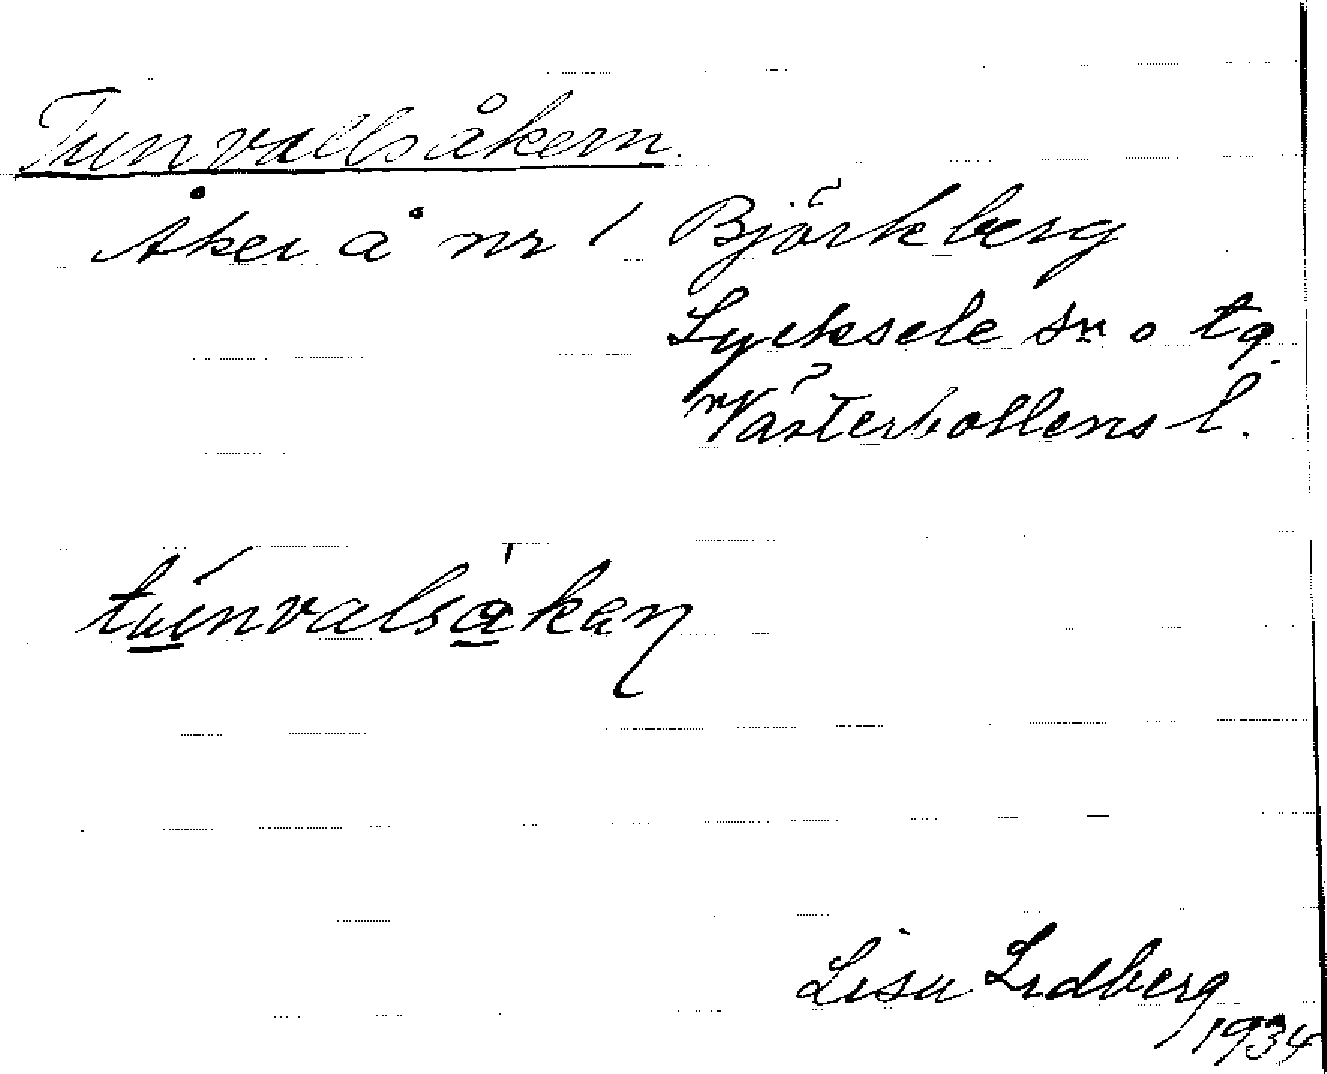 Tunvallsåkern.
Åker å nr 1 Björkberg
Lycksele sn o tg.
Västerbottens l.
tuunvalsåkan
Lisa Lidberg
1934